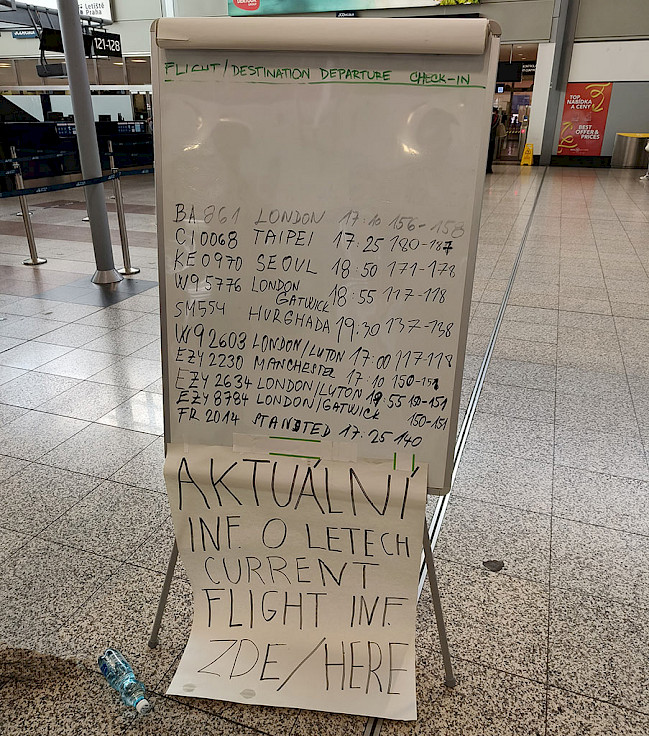 Letiště
Praha
121-128
FLIGHT/DESTINATION DEPARTURE CHECK-IN
TOP
NABÍDKA
A CENY
BEST
OFFER &
PRICES
BA 861 LONDON 17:10 156-158
CI 0068 TAIPEI 17:25 180-187
KE 0970 SEOUL 18:50 171-178
W9 5776 LONDON GATWICK 18:55 117-118
SM554 HURGHADA 19:30 137-138
W9 2603 LONDON/LUTON 17:00 117-118
EZY 2230 MANCHESTER 17:10 150-151
EZY 2634 LONDON/LUTON 55 150-151
EZY 8784 LONDON/GATWICK 150-151
FR 2014 STANSTED 17:25 140
AKTUÁLNÍ
INF. O LETECH
CURRENT
FLIGHT INF.
ZDE/HERE